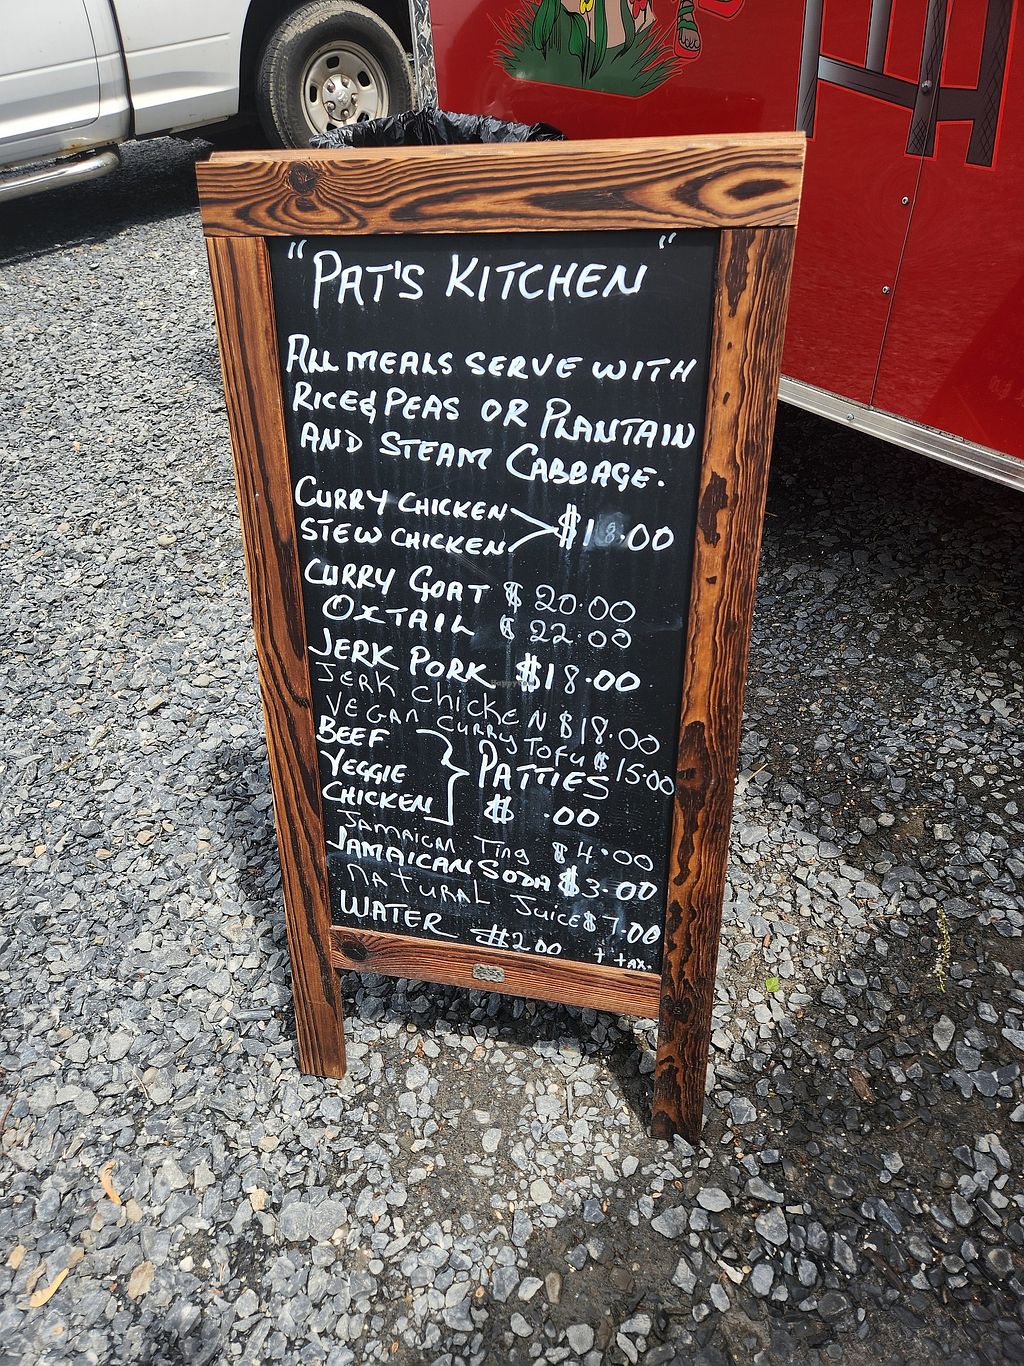 "PAT'S KITCHEN"
ALL MEALS SERVE WITH
RICE & PEAS OR PLANTAIN
AND STEAM CABBAGE.
CURRY CHICKEN
STEW CHICKEN $18.00
CURRY GOAT $20.00
OXTAIL $22.00
JERK PORK $18.00
JERK CHICKEN $18.00
VEGAN CURRY TOFU $15.00
BEEF
VEGGIE PATTIES
CHICKEN $ .00
JAMAICA Ting $4.00
JAMAICAN SODA $3.00
NATURAL Juice $7.00
WATER $2.00 + tax.